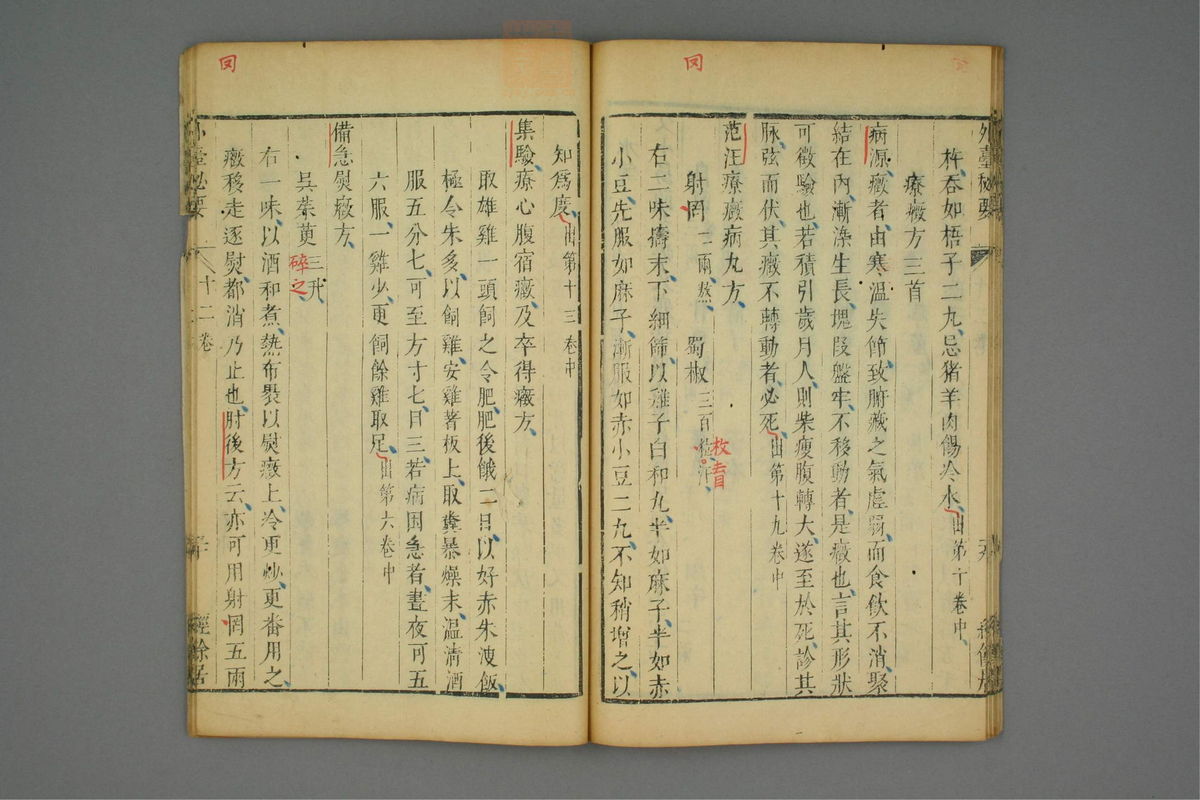 囡
外臺秘要
杵吞如梧子二丸忌猪羊肉餳冷水出第十卷中
療癥方三首
病源癥者由寒溫失節致腑藏之氣虛弱而食飲不消聚
結在內漸染生長塊段盤牢不移動者是癥也言其形狀
可徵驗也若積引歲月人則柴瘦腹轉大遂至於死診其
脉弦而伏其癥不轉動者必死出第十九卷中
范汪療癥病丸方
射罔二兩熬 蜀椒三百粒汗
枚
右二味擣末下細篩以雞子白和丸半如麻子半如赤
小豆先服如麻子漸服如赤小豆二丸不知稍增之以
知爲度出第十三卷中
集驗療心腹宿癥及卒得癥方
取雄雞一頭飼之令肥肥後餓二日以好赤朱溲飯
極令朱多以飼雞安雞著板上取糞暴燥末溫淸酒
服五分匕可至方寸匕日三若病困急者晝夜可五
六服一雞少更飼餘雞取足出第六卷中
備急熨癥方
吳茱萸三升
碎之
右一味以酒和煮熱布裹以熨癥上冷更炒更番用之
癥移走逐熨都消乃止也肘後方云亦可用射罔五兩
外臺秘要 十二卷 經餘居